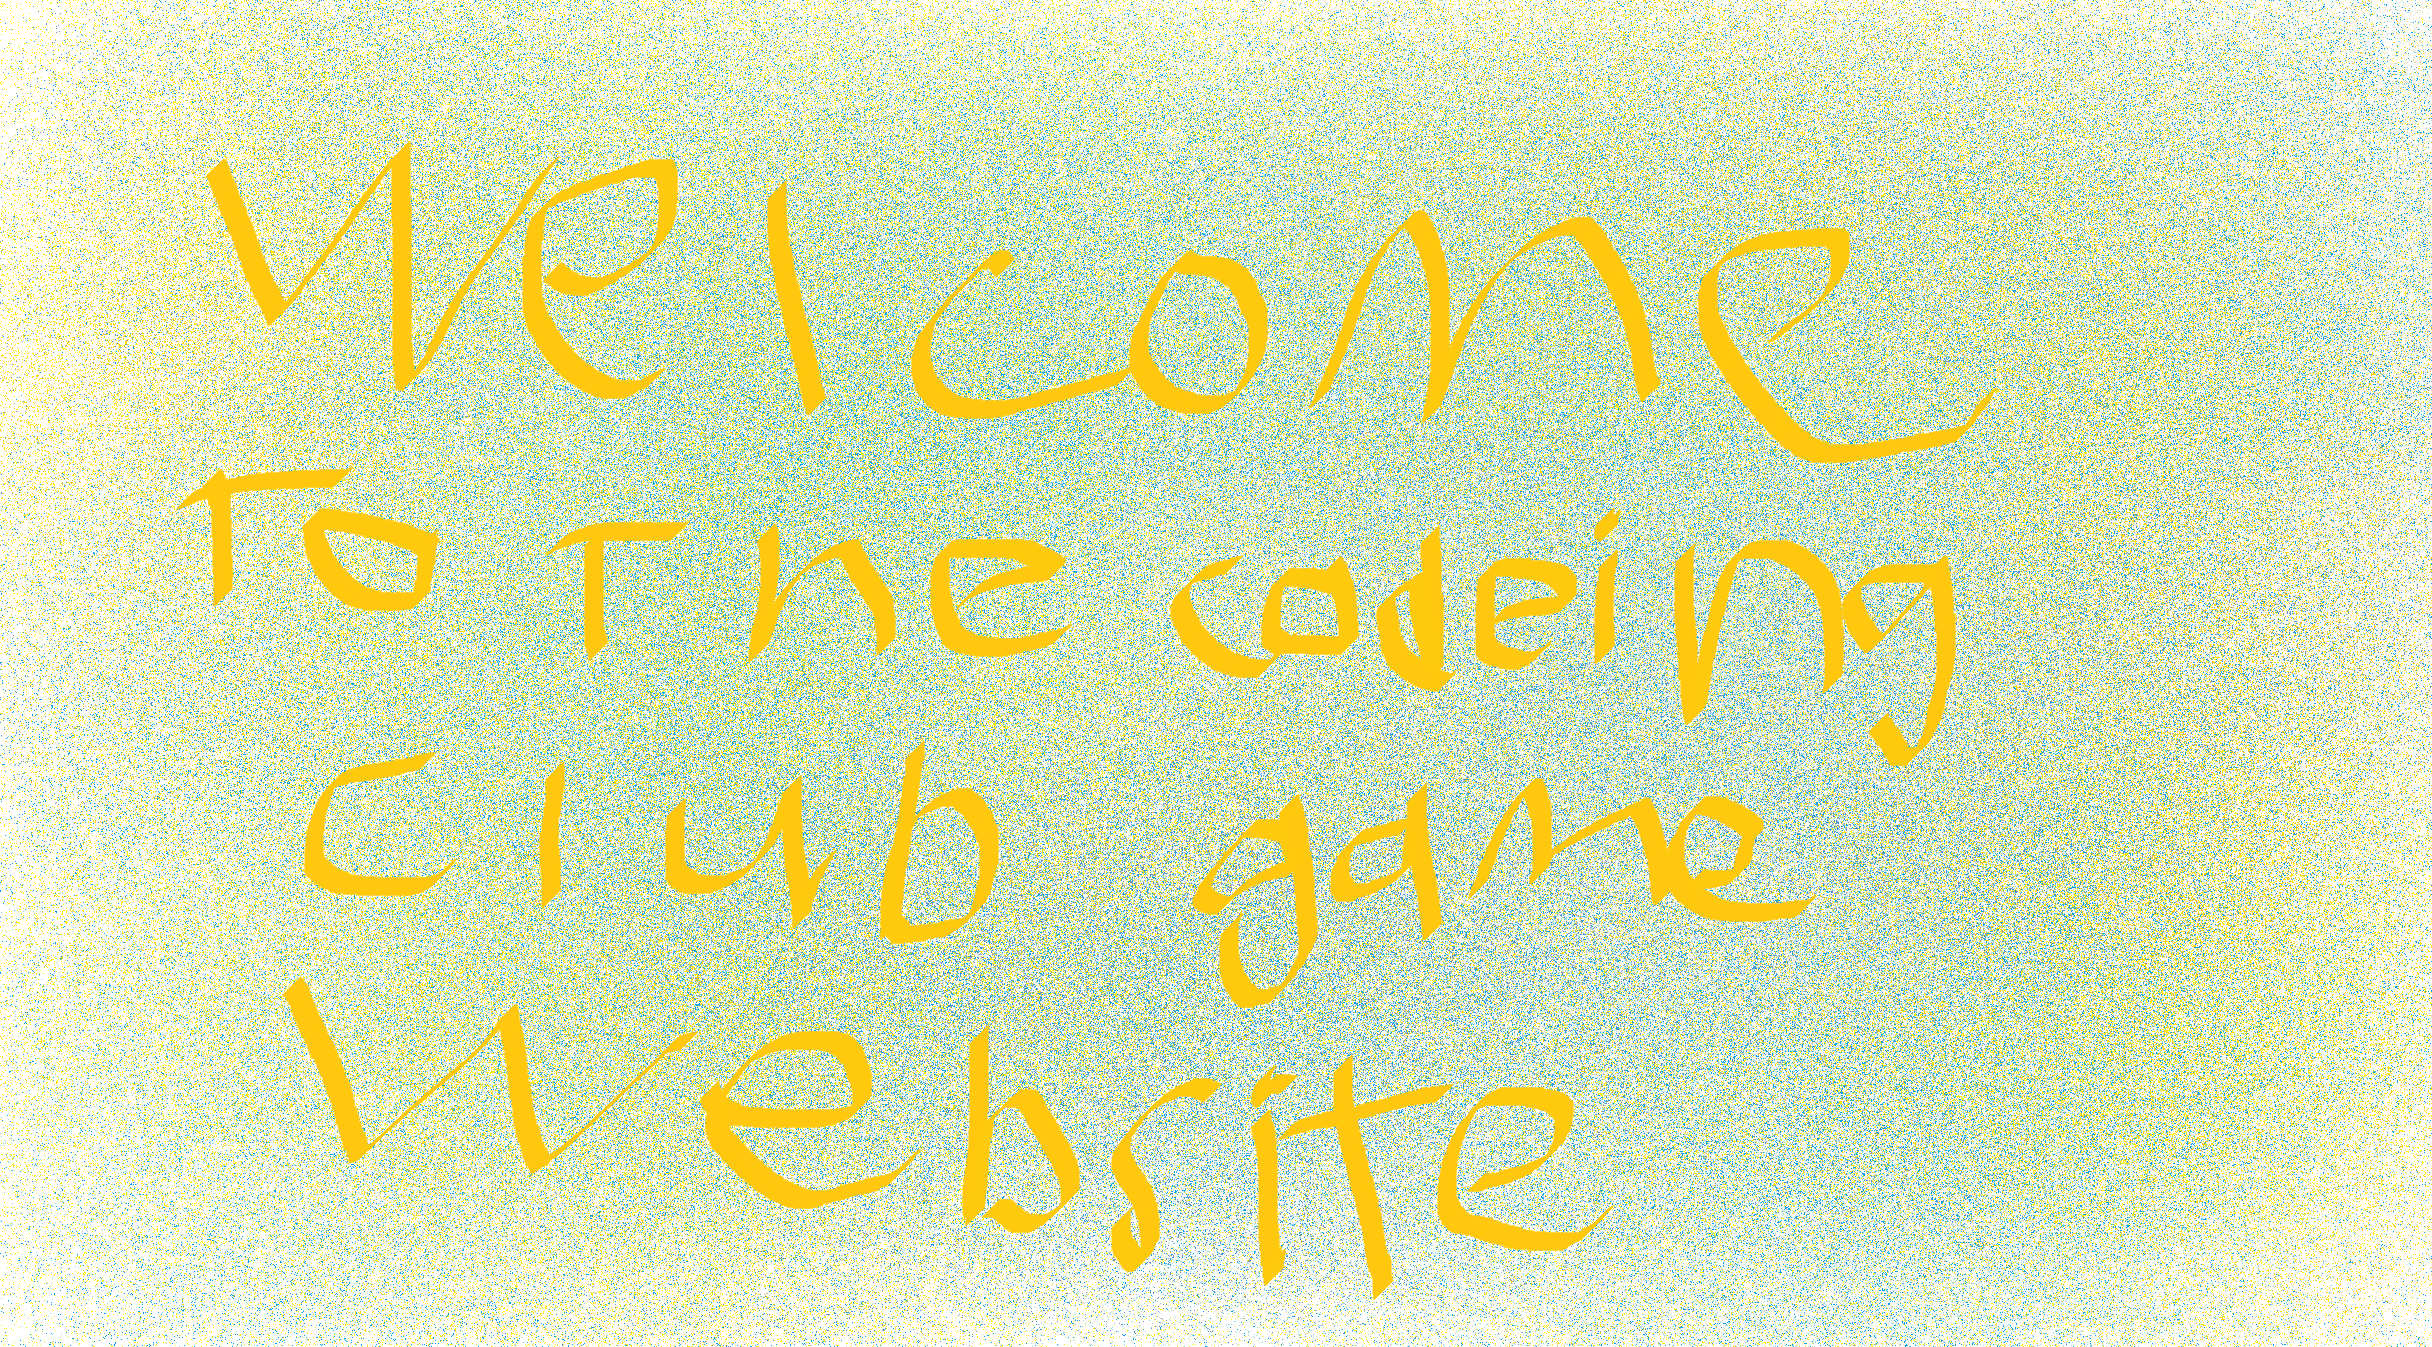 Welcome
To The codeing
Club game
Website